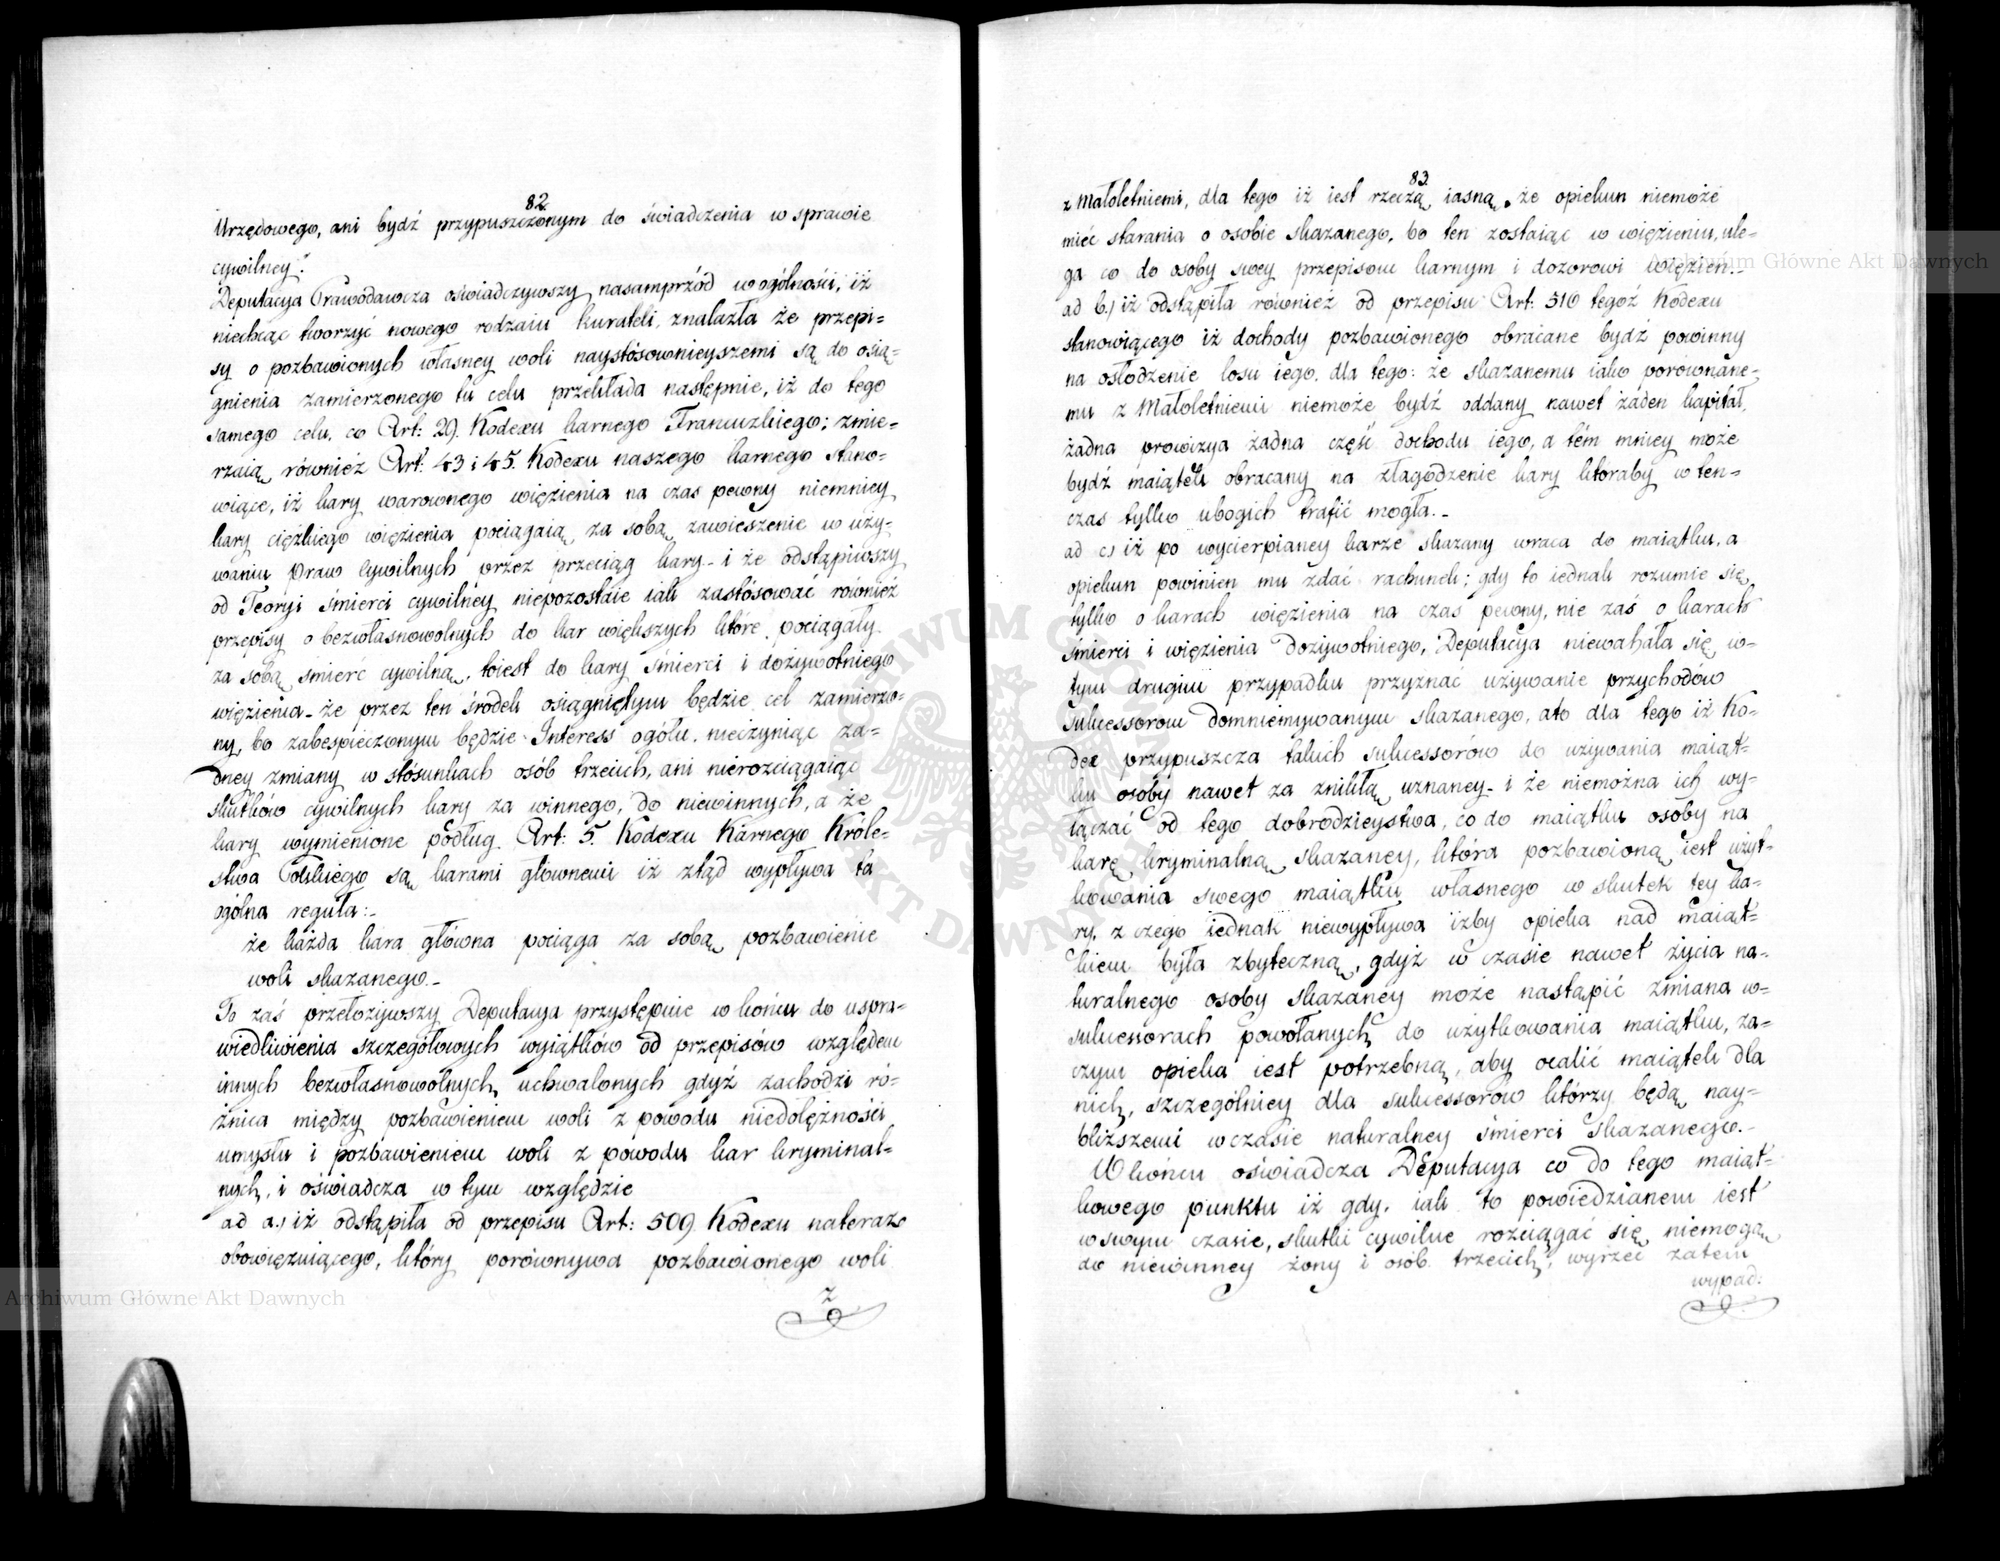 82
Urzędowego, ani bydź przypuszczonym do świadczenia w sprawie
cywilney".
Deputacya Prawodawcza oświadczywszy nasamprzód w ogólności, iż
niechcąc tworzyć nowego rodzaiu kurateli, znalazła że przepi=
sy o pozbawionych własney woli naystósownieyszemi są do osią=
gnienia zamierzonego tu celu przekłada następnie, iż do tego
samego celu, co Art: 29. Kodexu karnego Francuzkiego; zmie=
rzaią również Art: 43 i 45. Kodexu naszego karnego stano=
wiące, iż kary warownego więzienia na czas pewny niemniey
kary ciężkiego więzienia pociągaią za sobą zawieszenie w uży=
waniu Praw Cywilnych przez przeciąg kary - i że odstąpiwszy
od Teoryi śmierci cywilney niepozostaie iak zastósować również
przepisy o bezwłasnowolnych do kar większych które pociągały
za sobą śmierć cywilną, toiest do kary śmierci i dożywotniego
więzienia - że przez ten środek osiągniętym będzie cel zamierzo=
ny, bo zabespieczonym będzie Interess ogółu, nieczyniąc ża=
dney zmiany w stósunkach osób trzecich, ani nierozciągaiąc
skutków cywilnych kary za winnego, do niewinnych, a że
kary wymienione podług Art: 5. Kodexu Karnego Króle=
stwa Polskiego są karami głównemi iż ztąd wypływa ta
ogólna reguła:-
że każda kara główna pociąga za sobą pozbawienie
woli skazanego. -
To zaś przełożywszy Deputacya przystępuie w końcu do uspra=
wiedliwienia szczegółowych wyiątków od przepisów względem
innych bezwłasnowolnych, uchwalonych gdyż zachodzi ró=
żnica między pozbawieniem woli z powodu niedołężności
umysłu i pozbawieniem woli z powodu kar kryminal=
nych, i oświadcza w tym względzie
ad a.) iż odstąpiła od przepisu Art: 509. Kodexu nateraz
obowięzuiącego, który porównywa pozbawionego woli
z
83
z Małoletniemi, dla tego iż iest rzeczą iasną, że opiekun niemoże
mieć starania o osobie skazanego, bo ten zostaiąc w więzieniu, ule=
ga co do osoby swey przepisom karnym i dozorowi więzien. -
ad b.) iż odstąpiła również od przepisu Art: 510 tegoż Kodexu
stanowiącego iż dochody pozbawionego obracane bydź powinny
na osłodzenie losu iego, dla tego: że skazanemu iako porownane=
mu z Małoletniemi niemoże bydź oddany nawet żaden kapitał,
żadna prowizya żadna część dochodu iego, a tém mniey może
bydź maiątek obracany na złagodzenie kary któraby w ten=
czas tylko ubogich trafić mogła. -
ad c) iż po wycierpianey karze skazany wraca do maiątku, a
opiekun powinien mu zdać rachunek; gdy to iednak rozumie się
tylko o karach więzienia na czas pewny, nie zaś o karach
śmierci i więzienia dożywotniego, Deputacya niewahała się w-
tym drugim przypadku przyznać używanie przychodów
Sukcessorom domniemywanym skazanego, a to dla tego iż Ko=
dex przypuszcza takich sukcessorów do używania maiąt=
ku osoby nawet za znikłą uznaney - i że niemożna ich wy=
łączać od tego dobrodzieystwa, co do maiątku osoby na
karę kryminalną skazaney, która pozbawioną iest użyt=
kowania swego maiątku własnego w skutek tey ka=
ry, z czego iednak niewypływa iżby opieka nad maiąt=
kiem była zbyteczną, gdyż w czasie nawet życia na=
turalnego osoby skazaney może nastąpić zmiana w-
sukcessorach powołanych do użytkowania maiątku, za=
czym opieka iest potrzebną, aby ocalić maiątek dla
nich, szczególniey dla sukcessorów którzy będą nay=
bliższemi w czasie naturalney śmierci skazanego. -
W końcu oświadcza Deputacya co do tego maiąt=
kowego punktu iż gdy, iak to powiedzianem iest
w swym czasie, skutki cywilne rozciągać się niemogą
do niewinney żony i osób trzecich, wyrzec zatem
wypad:
Archiwum Główne Akt Dawnych
Archiwum Główne Akt Dawnych
ARCHIWUM GŁÓWNE AKT DAWNYCH